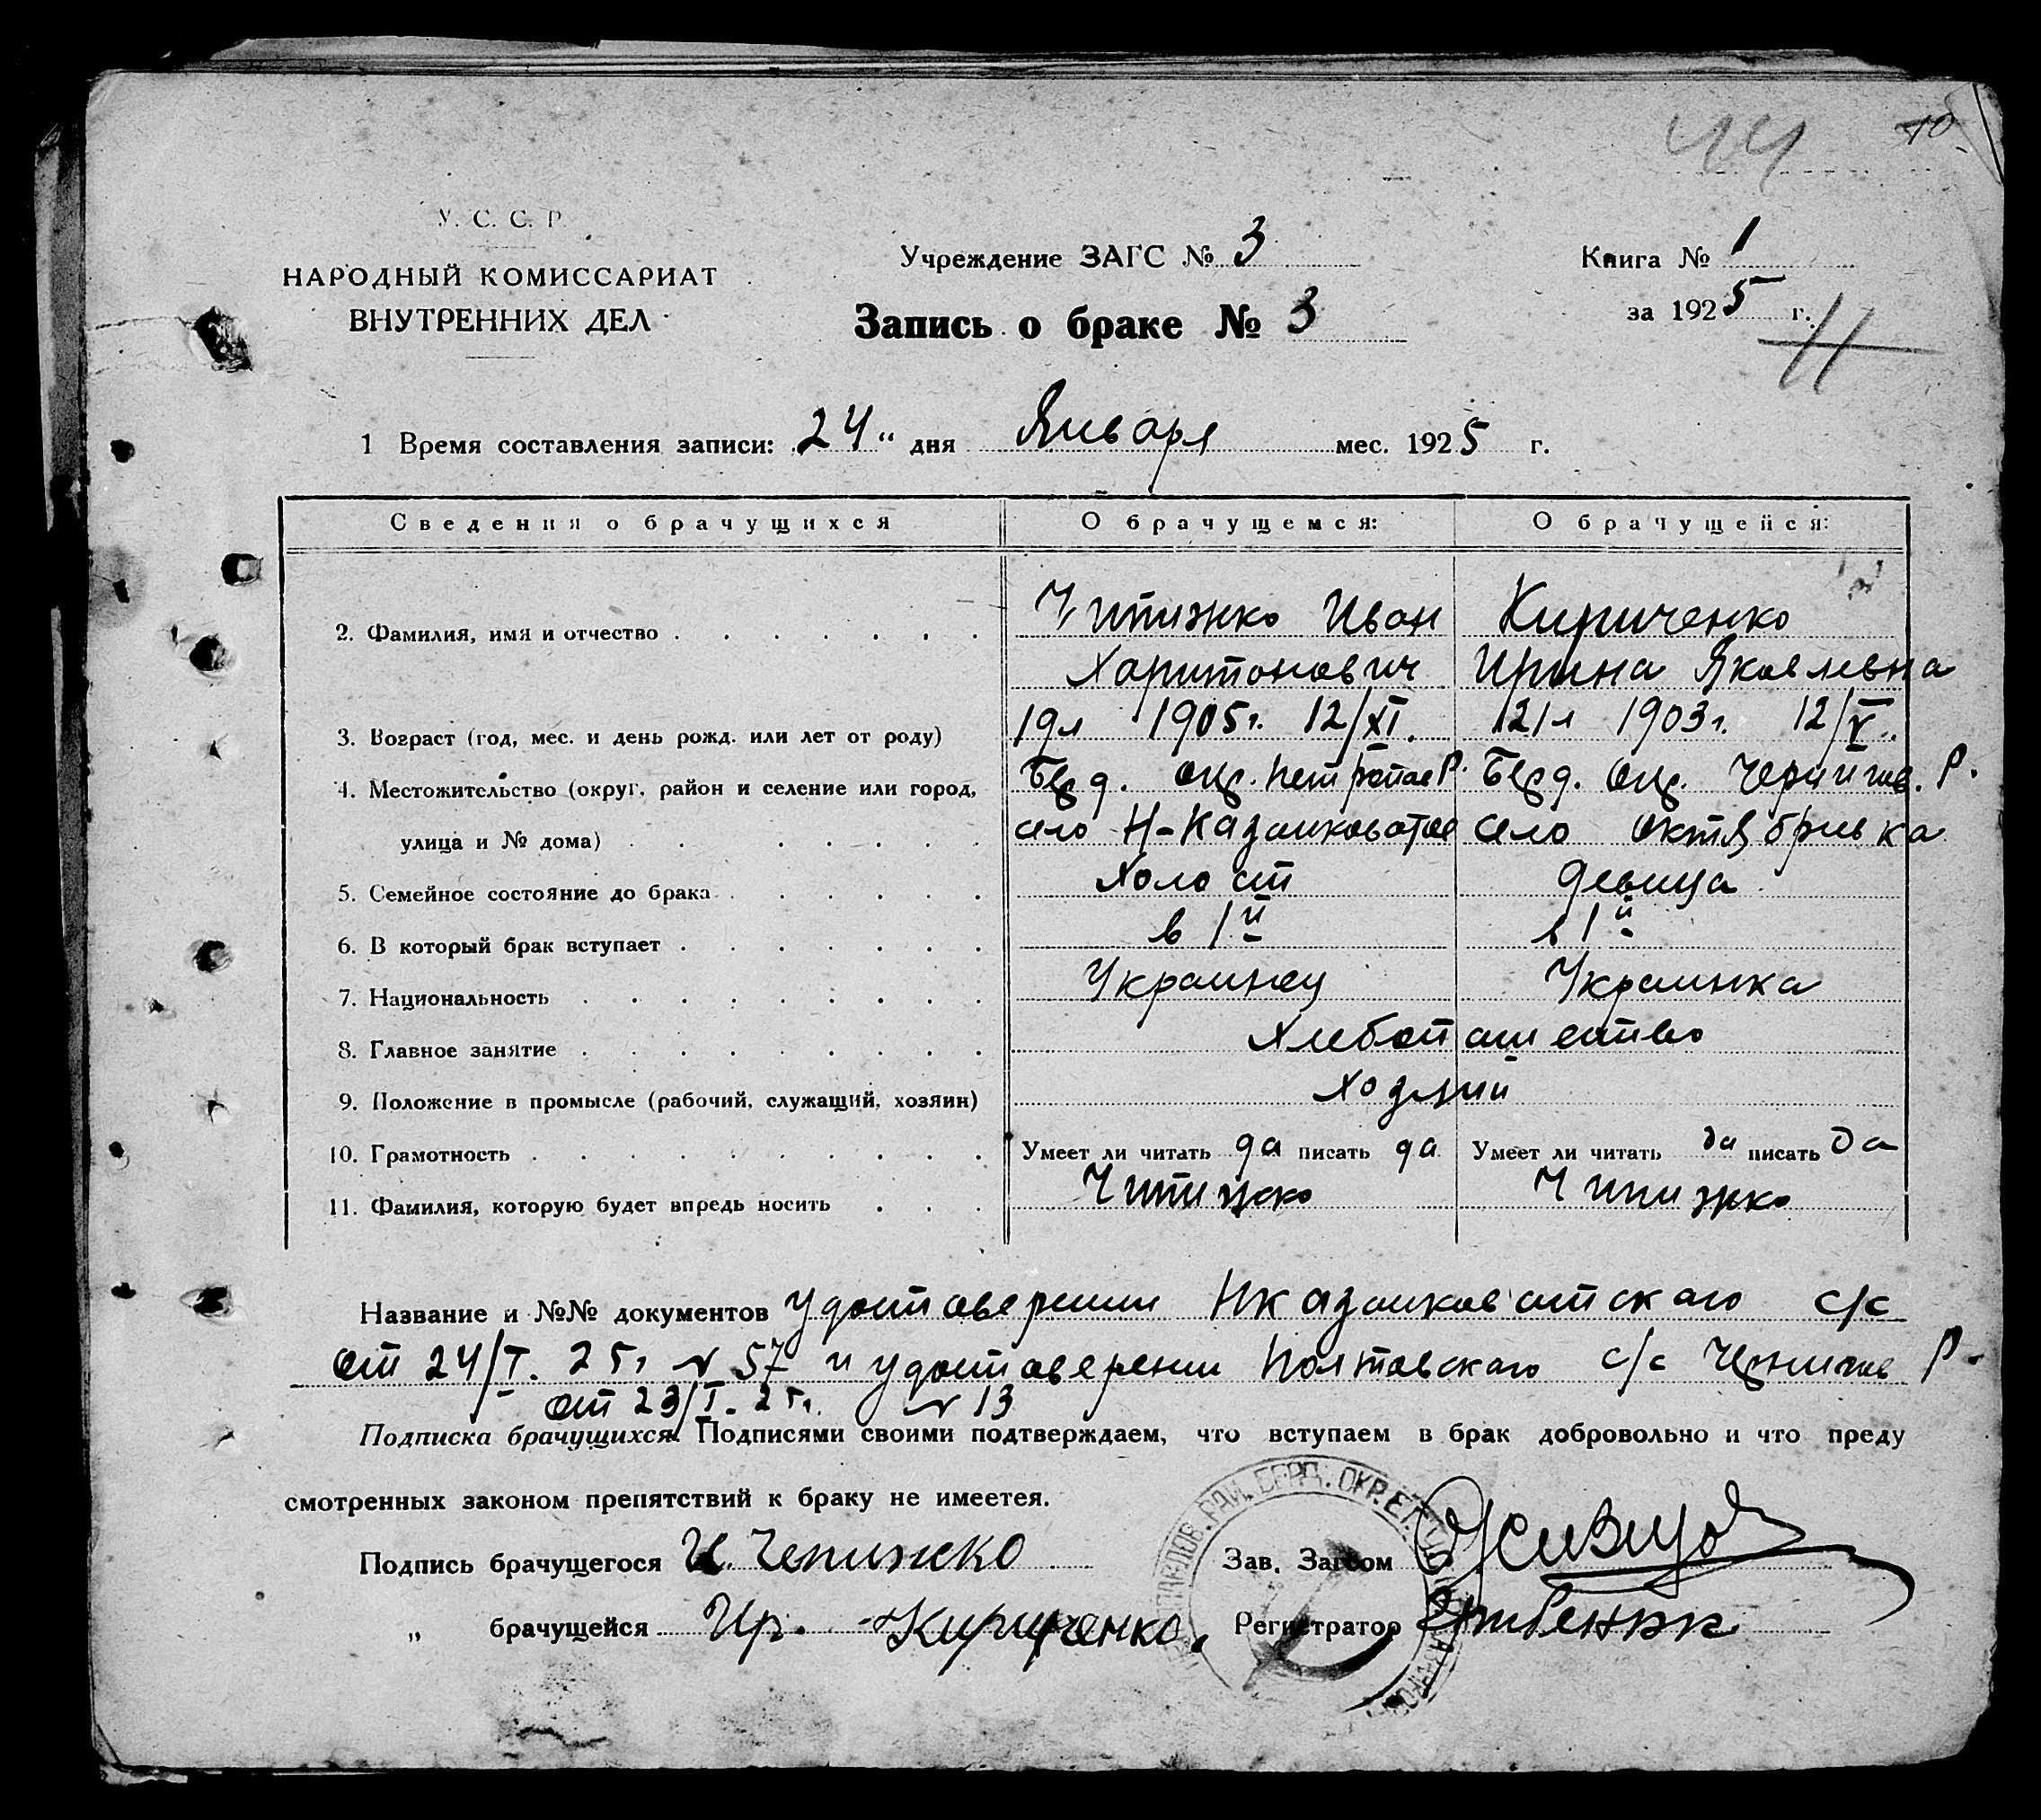 44 10
У. С. С. Р.
НАРОДНЫЙ КОМИССАРИАТ
ВНУТРЕННИХ ДЕЛ
Учреждение ЗАГС № 3
Книга № 1
за 1925 г.
11
Запись о браке № 3
1 Время составления записи: 24 " дня Января мес. 1925 г.
Сведения о брачущихся О брачущемся: О брачущейся:
2. Фамилия, имя и отчество Чипижко Иван Кириченко
Харитонович Ирина Яковлевна
3. Возраст (год, мес. и день рожд. или лет от роду) 19л 1905г. 12/XI. 21л 1903г. 12/V.
4. Местожительство (округ, район и селение или город, Берд. Окр. Р. Берд. Окр. Чернигов. Р.
улица и № дома) село Н-Казанковатое село Октябривка
5. Семейное состояние до брака Холост девица
6. В который брак вступает в 1й в 1й
7. Национальность Украинец Украинка
8. Главное занятие Хлебопашество
9. Положение в промысле (рабочий, служащий, хозяин) хозяин
10. Грамотность Умеет ли читать да писать да Умеет ли читать да писать да
11. Фамилия, которую будет впредь носить Чипижко Чипижко
Название и №№ документов Удостоверении Нказанковатскаго с/с
от 24/I. 25г № 57 и удостоверении Полтовскаго с/с Чернигов Р.
от 23/I. 25г. № 13
Подписка брачущихся. Подписями своими подтверждаем, что вступаем в брак добровольно и что преду
смотренных законом препятствий к браку не имеется.
Подпись брачущегося И. Чепижко Зав. Загсом
„ брачущейся Ир. Кириченко. Регистратор
РАЙ. БЕРД. ОКР. ЕКАТ.